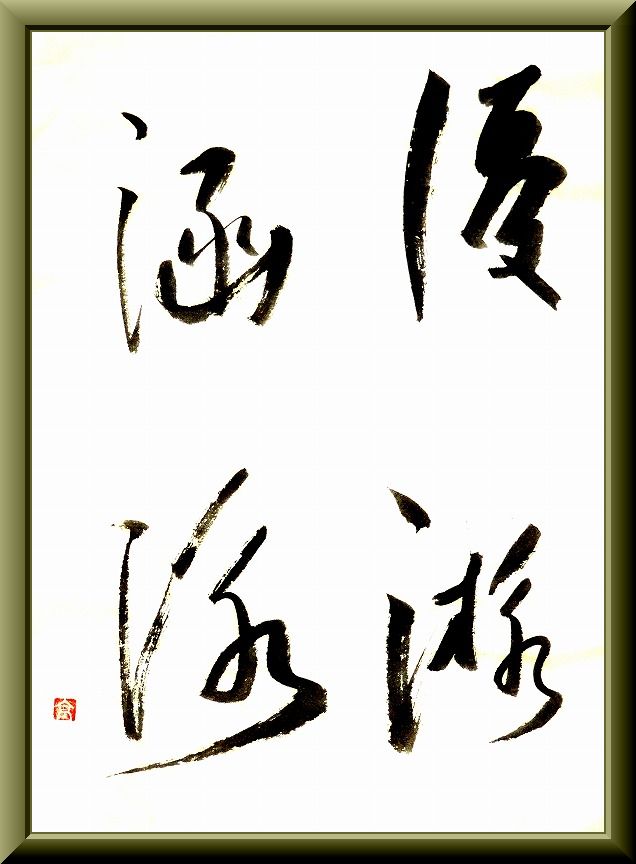 優游
涵泳